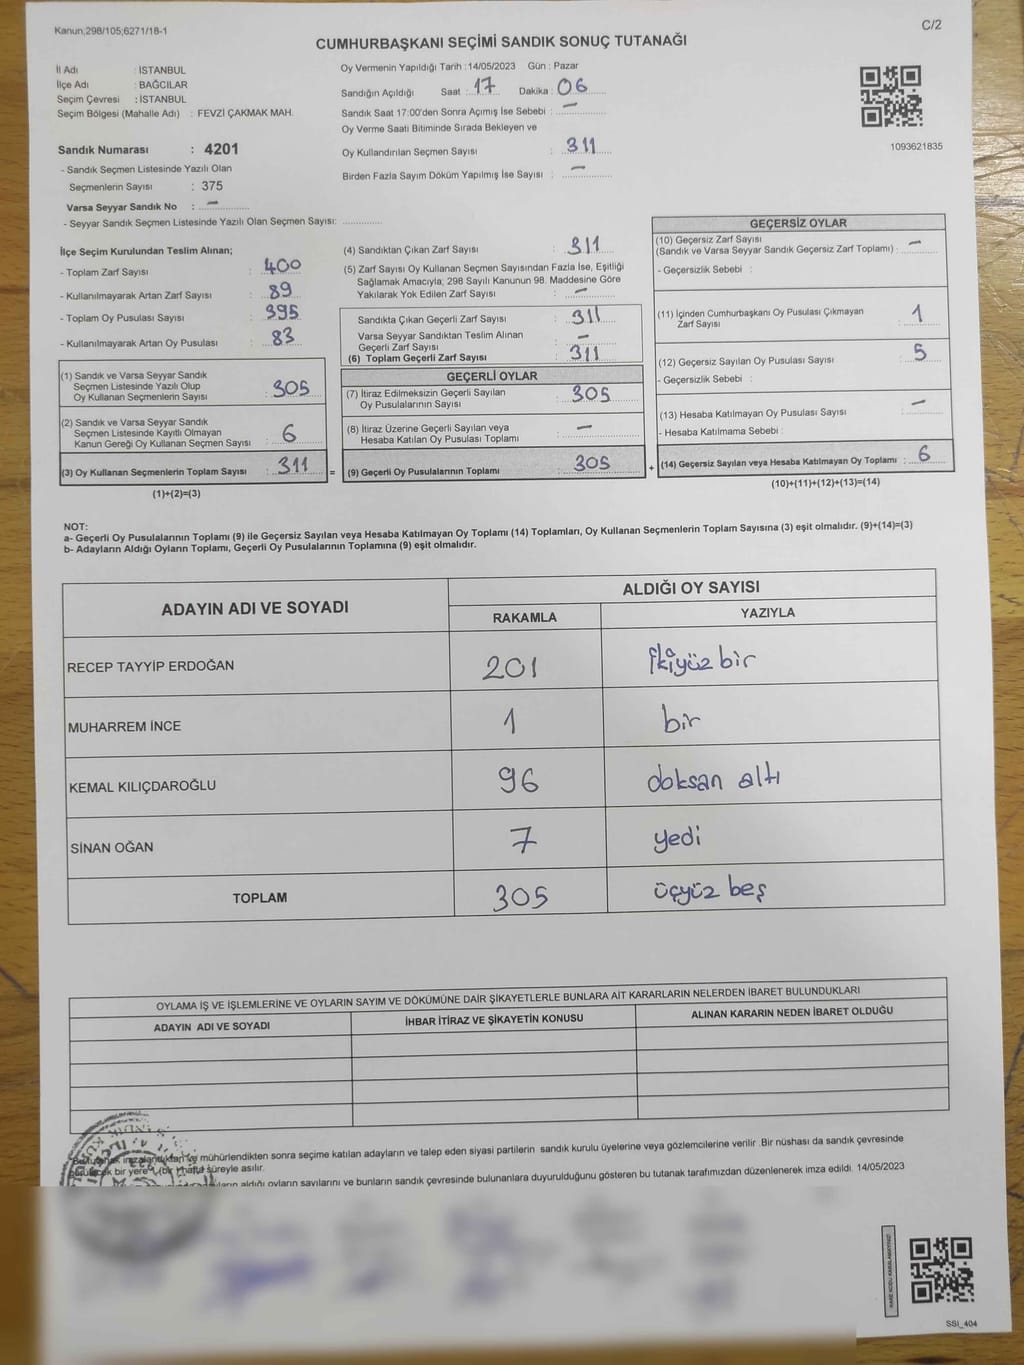 Kanun;298/105;6271/18-1
C/2
CUMHURBAŞKANI SEÇİMİ SANDIK SONUÇ TUTANAĞI
İl Adı : İSTANBUL
İlçe Adı : BAĞCILAR
Seçim Çevresi : İSTANBUL
Seçim Bölgesi (Mahalle Adı) : FEVZİ ÇAKMAK MAH.
Sandık Numarası : 4201
- Sandık Seçmen Listesinde Yazılı Olan
Seçmenlerin Sayısı : 375
Varsa Seyyar Sandık No : —
- Seyyar Sandık Seçmen Listesinde Yazılı Olan Seçmen Sayısı: ............
Oy Vermenin Yapıldığı Tarih : 14/05/2023 Gün : Pazar
Sandığın Açıldığı Saat : 17 Dakika : 06
Sandık Saat 17:00'den Sonra Açımış İse Sebebi : —
Oy Verme Saati Bitiminde Sırada Bekleyen ve
Oy Kullandırılan Seçmen Sayısı : 311
Birden Fazla Sayım Döküm Yapılmış İse Sayısı : —
1093621835
İlçe Seçim Kurulundan Teslim Alınan;
- Toplam Zarf Sayısı : 400
- Kullanılmayarak Artan Zarf Sayısı : 89
- Toplam Oy Pusulası Sayısı : 395
- Kullanılmayarak Artan Oy Pusulası : 83
(1) Sandık ve Varsa Seyyar Sandık
Seçmen Listesinde Yazılı Olup
Oy Kullanan Seçmenlerin Sayısı : 305
(2) Sandık ve Varsa Seyyar Sandık
Seçmen Listesinde Kayıtlı Olmayan
Kanun Gereği Oy Kullanan Seçmen Sayısı : 6
(3) Oy Kullanan Seçmenlerin Toplam Sayısı : 311 =
(1)+(2)=(3)
(4) Sandıktan Çıkan Zarf Sayısı : 311
(5) Zarf Sayısı Oy Kullanan Seçmen Sayısından Fazla İse, Eşitliği
Sağlamak Amacıyla; 298 Sayılı Kanunun 98. Maddesine Göre
Yakılarak Yok Edilen Zarf Sayısı : —
Sandıkta Çıkan Geçerli Zarf Sayısı : 311
Varsa Seyyar Sandıktan Teslim Alınan
Geçerli Zarf Sayısı : —
(6) Toplam Geçerli Zarf Sayısı : 311
GEÇERLİ OYLAR
(7) İtiraz Edilmeksizin Geçerli Sayılan
Oy Pusulalarının Sayısı : 305
(8) İtiraz Üzerine Geçerli Sayılan veya
Hesaba Katılan Oy Pusulası Toplamı : —
(9) Geçerli Oy Pusulalarının Toplamı : 305 +
GEÇERSİZ OYLAR
(10) Geçersiz Zarf Sayısı
(Sandık ve Varsa Seyyar Sandık Geçersiz Zarf Toplamı) : —
- Geçersizlik Sebebi :
(11) İçinden Cumhurbaşkanı Oy Pusulası Çıkmayan
Zarf Sayısı : 1
(12) Geçersiz Sayılan Oy Pusulası Sayısı : 5
- Geçersizlik Sebebi :
(13) Hesaba Katılmayan Oy Pusulası Sayısı : —
- Hesaba Katılmama Sebebi :
(14) Geçersiz Sayılan veya Hesaba Katılmayan Oy Toplamı : 6
(10)+(11)+(12)+(13)=(14)
NOT:
a- Geçerli Oy Pusulalarının Toplamı (9) ile Geçersiz Sayılan veya Hesaba Katılmayan Oy Toplamı (14) Toplamları, Oy Kullanan Seçmenlerin Toplam Sayısına (3) eşit olmalıdır. (9)+(14)=(3)
b- Adayların Aldığı Oyların Toplamı, Geçerli Oy Pusulalarının Toplamına (9) eşit olmalıdır.
ADAYIN ADI VE SOYADI
ALDIĞI OY SAYISI
RAKAMLA YAZIYLA
RECEP TAYYİP ERDOĞAN 201 ikiyüz bir
MUHARREM İNCE 1 bir
KEMAL KILIÇDAROĞLU 96 doksan altı
SİNAN OĞAN 7 yedi
TOPLAM 305 üçyüz beş
OYLAMA İŞ VE İŞLEMLERİNE VE OYLARIN SAYIM VE DÖKÜMÜNE DAİR ŞİKAYETLERLE BUNLARA AİT KARARLARIN NELERDEN İBARET BULUNDUKLARI
ADAYIN ADI VE SOYADI İHBAR İTİRAZ VE ŞİKAYETİN KONUSU ALINAN KARARIN NEDEN İBARET OLDUĞU
mühürlendikten sonra seçime katılan adayların ve talep eden siyasi partilerin sandık kurulu üyelerine veya gözlemcilerine verilir .Bir nüshası da sandık çevresinde
bir yere 1 (bir ) hafta süreyle asılır.
aldığı oyların sayılarını ve bunların sandık çevresinde bulunanlara duyurulduğunu gösteren bu tutanak tarafımızdan düzenlenerek imza edildi. 14/05/2023
SSI_404